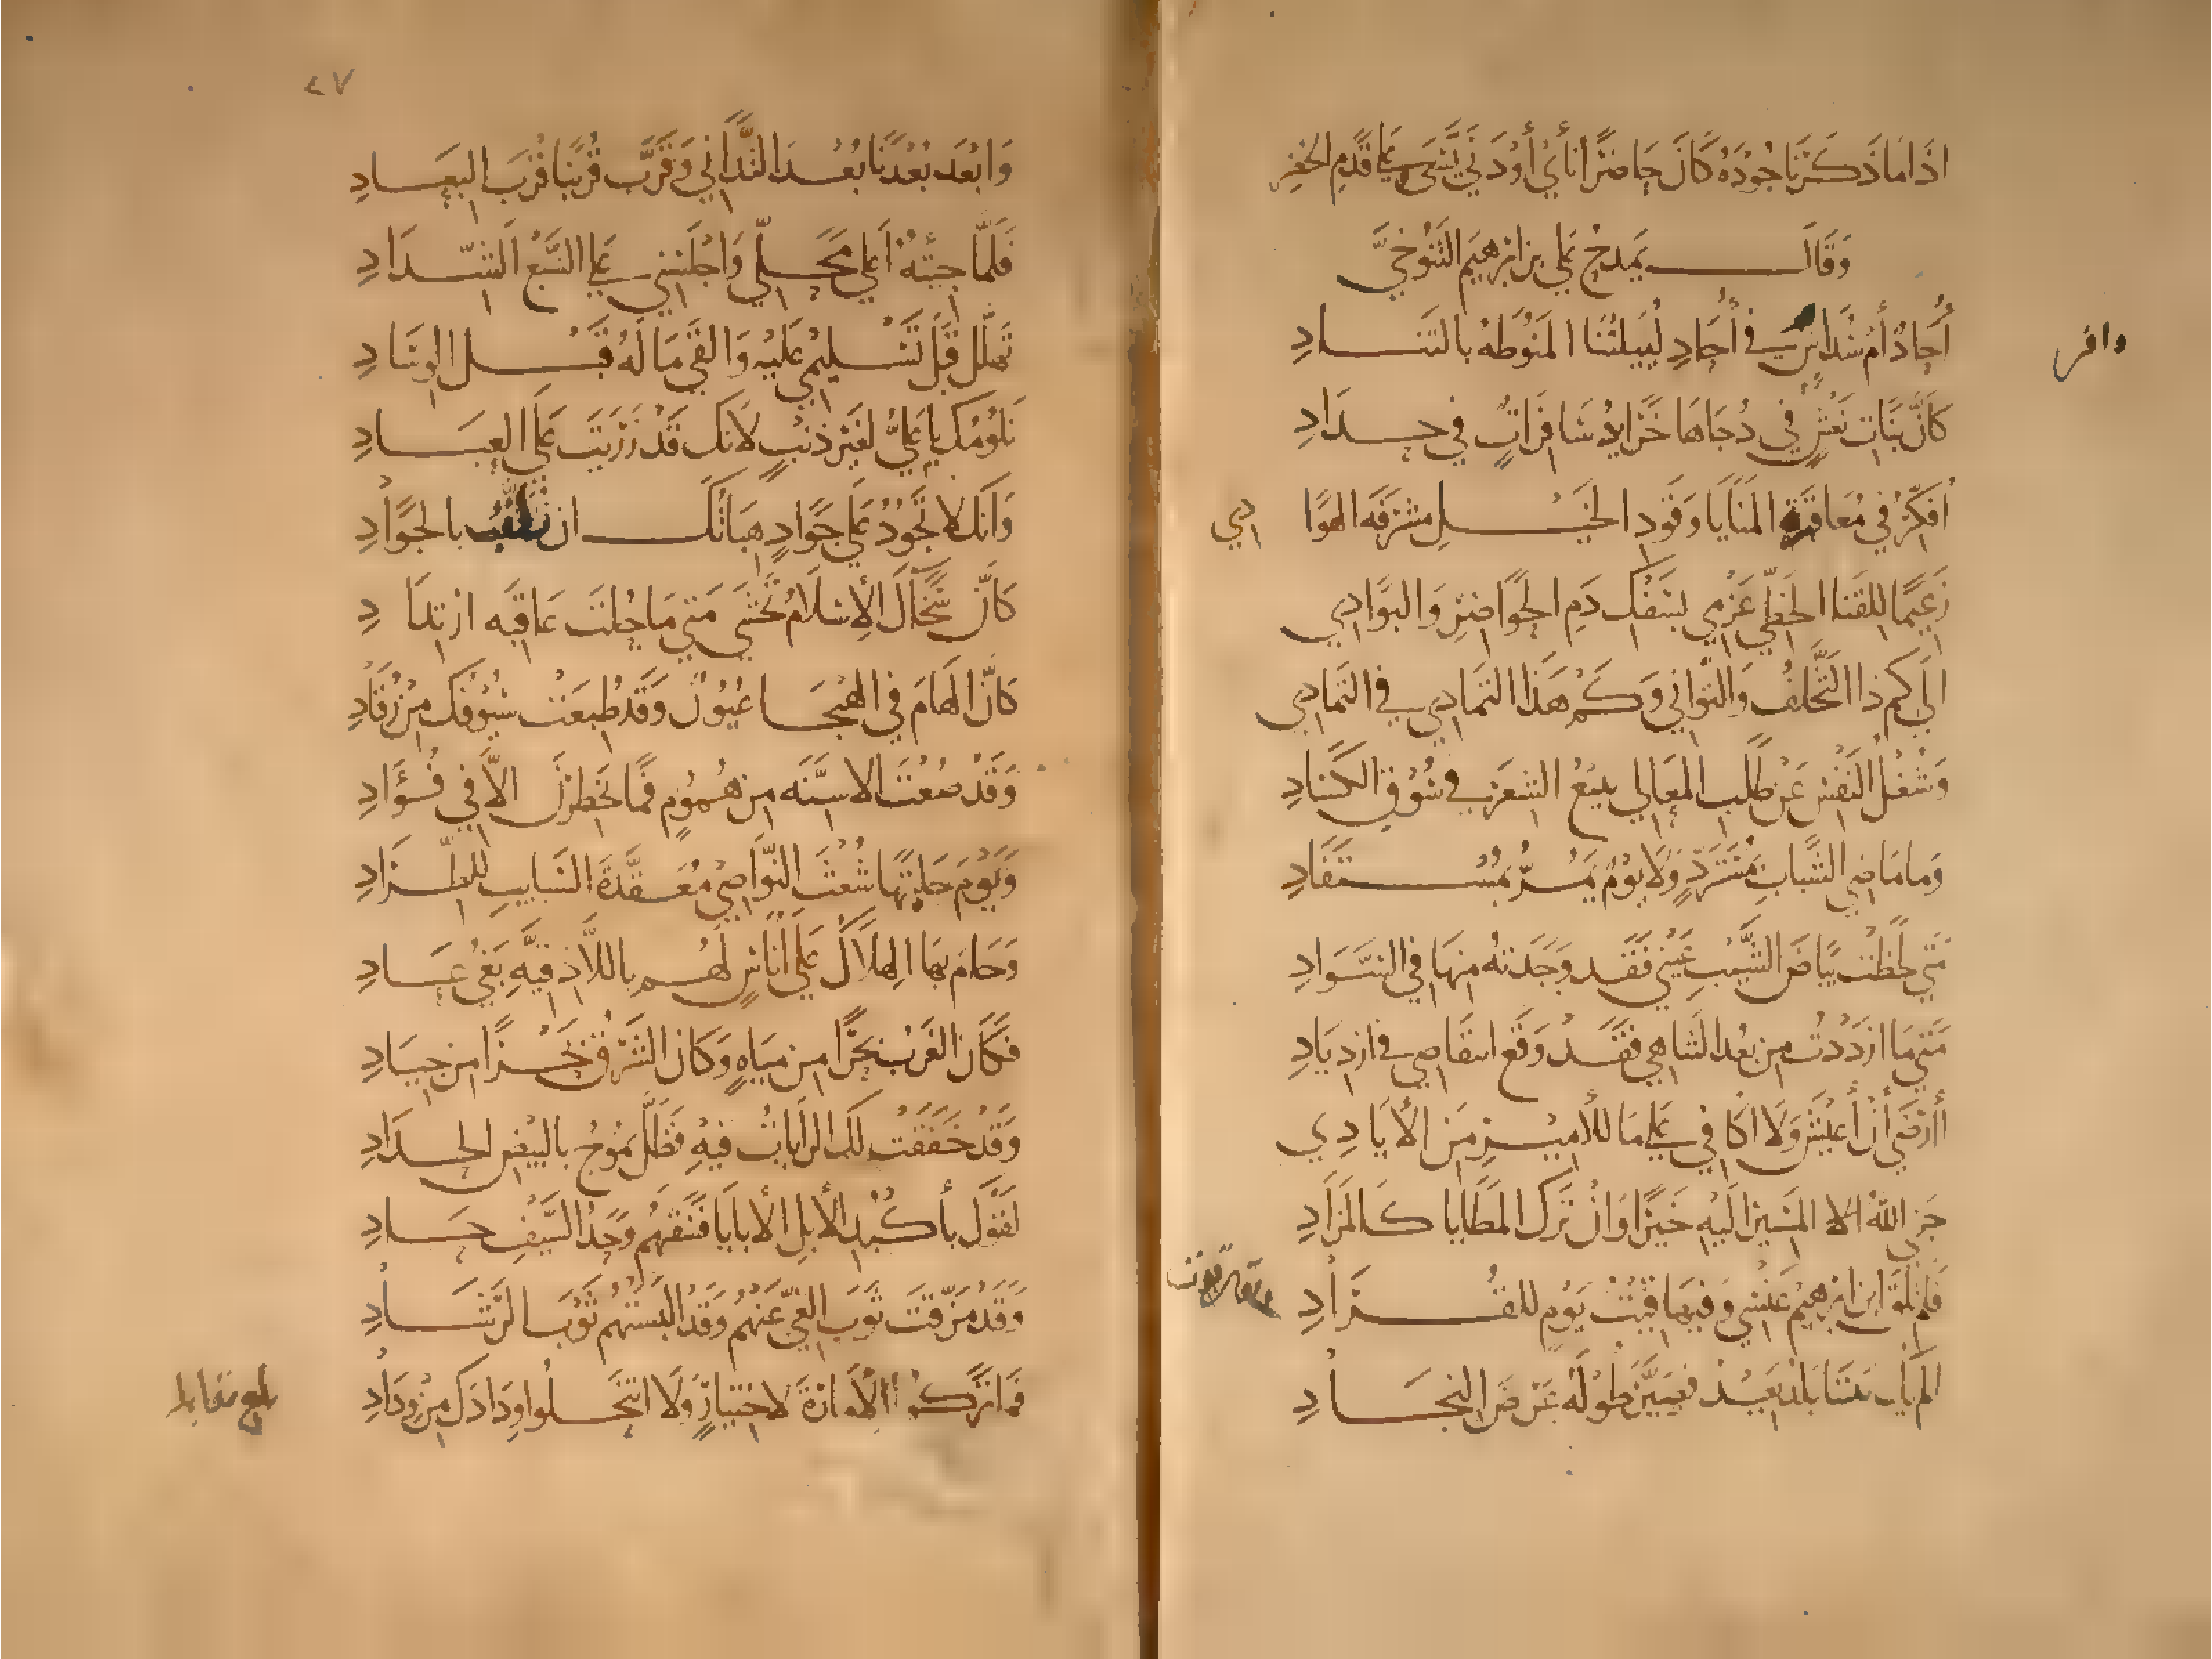 اذَا مَا ذَكَرْنَا جُوْدَهُ كَانَ حَاضِرًا نَأَىٰ أَوْ دَنَى يَسْعَى عَلى قَدَمِ الخِضْرِ
وَقَالَ يَمدحُ عَلي بن ابْرهيم التَنُوخيَّ
أُحَادٌ أَمْ سُدَاسٌ في أُحَادِ لُيَيلَتُنَا المنُوطَهُ بالتَنَادِ
وافر
كَأَنَّ بَنَاتِ نَعْشٍ في دُجَاهَا خَرَايدُ سَافِرَاتٌ في حِدَادِ
اُفَكِّرُ في مُعَاقَرَةِ المنَايَا وَقَودِ الخَيْلِ مشْرَفَه الهوَادي
زَعِيمًا للقَنَا الخَطّي عَزْمي بسَفْكِ دَمِ الحوَاضِرِ وَالبوَادي
الَى كم ذا التَّخَلُّفُ وَالتَّوَاني وَكمْ هَذا التمادي في التمَادي
وَشُغْلُ النَفْسِ عَنْ طَلَبِ المعَالي ببَيْعُ الشعَرِ في سُوْقِ الكسَادِ
وَما مَاضِي الشَّبَابِ بمُسْتَرَدٍّ وَلَا يَوْمٌ يَمُرُّ بمُسْتَفَادِ
مَتَى لحَظَتْ بَيَاضَ الشَّيْبِ عَيْني فَقَد وَجَدَتهُ منهَا في السَّوَادِ
مَتَى مَا ازْدَدْتُ من بَعْدِ التناهي فَقَدْ وَقَع انتقَاصي في ازديَادِ
أأرْضَى أنْ أَعيْشَ وَلَا اكَافي عَلى مَا للأميْرِ مِنَ الأيَادِي
جَزى اللّٰهُ المَسيرَ الَيْهِ خَيرًا وَانْ تَرَكَ المطَايَا كَالمَزَادِ
فَلم تَلْقَ ابن ابْرهيم عَنْسي وَفيهَا قيْتُ يَوْمٍ للقُرَادِ
الم يَك بَيْنَنَا بَلدٌ بَعيْدٌ فصَيَّرَ طُوْلَهُ عَرْضَ النجَادِ
٤٧
وَابْعَدَ بُعْدَنَا بُعْدَ التَّدَاني وَقَرَّبَ قُرْبَنَا قُرْبَ البعَادِ
فَلَمَّا جئتهُ أعْلى مَحَلّي وَاجْلَسَني عَلى السَّبْعِ الشدَادِ
تَهَلّلَ قَبلَ تَسْليمي عَلَيْه وَالقَى مَالَهُ قَبْل الوسَادِ
نَلُوْمُكَ يا عَليُّ لغَيْر ذنبٍ لأنكَ قَدْ زَرَيتَ عَلى العبَادِ
وَانكَ لا تجُوْدُ عَلى جَوَادٍ هبَاتُكَ ان يُلَقَّبَ بالجوَادِ
كَأنَّ سَخَاكَ الأسْلَامُ تَخْشَى مَتى مَا حُلتَ عَاقبَه ارْتدَادِ
كَأنَّ الهَامَ في الهيْجَا عُيُوْنٌ وَقَد طُبعَتْ سُيُوْفُكَ مِنْ رُقَادِ
وَقَدْ صُغْتَ الاسِنَّه من هُمومٍ فمَا يَخْطِرْنَ الاّ في فُؤَادِ
وَيَوْمَ جَلَبْتَهَا شُعْثَ النَّوَاصي مُعَقَّدَةَ السَّبَايبِ للطّرَادِ
وَحَامَ بهَا الهلَاكُ عَلى أُنَاسٍ لهُم باللّاذقيَّهِ بَغْيُ عَادِ
فكَانَ الغَرْبُ بَحْرًا من ميَاهٍ وَكَانَ الشَرْقُ بَحْرًا من جيَادِ
وَقَدْ خَفَقَتْ لَكَ الرَايَاتُ فيْهِ فَظَلَّ يَمُوْجُ بالبيْضِ الحدَادِ
لَقَوْكَ بأكْبُدِ الأبلِ الأبَايَا فَسُقْتَهُم وَحَدُّ السَّيْفِ حَادِ
وَقَدْ مَزّقْتَ ثَوْبَ الغَيّ عَنْهُمْ وَقَدْ الْبَسْتَهُم ثَوْبَ الرَشَادِ
فَمَا تَرَكُوا الأمَارَةَ لاخْتيَارٍ وَلَا انْتَحَلوا ودَادَكَ مِنْ وِدَادِ